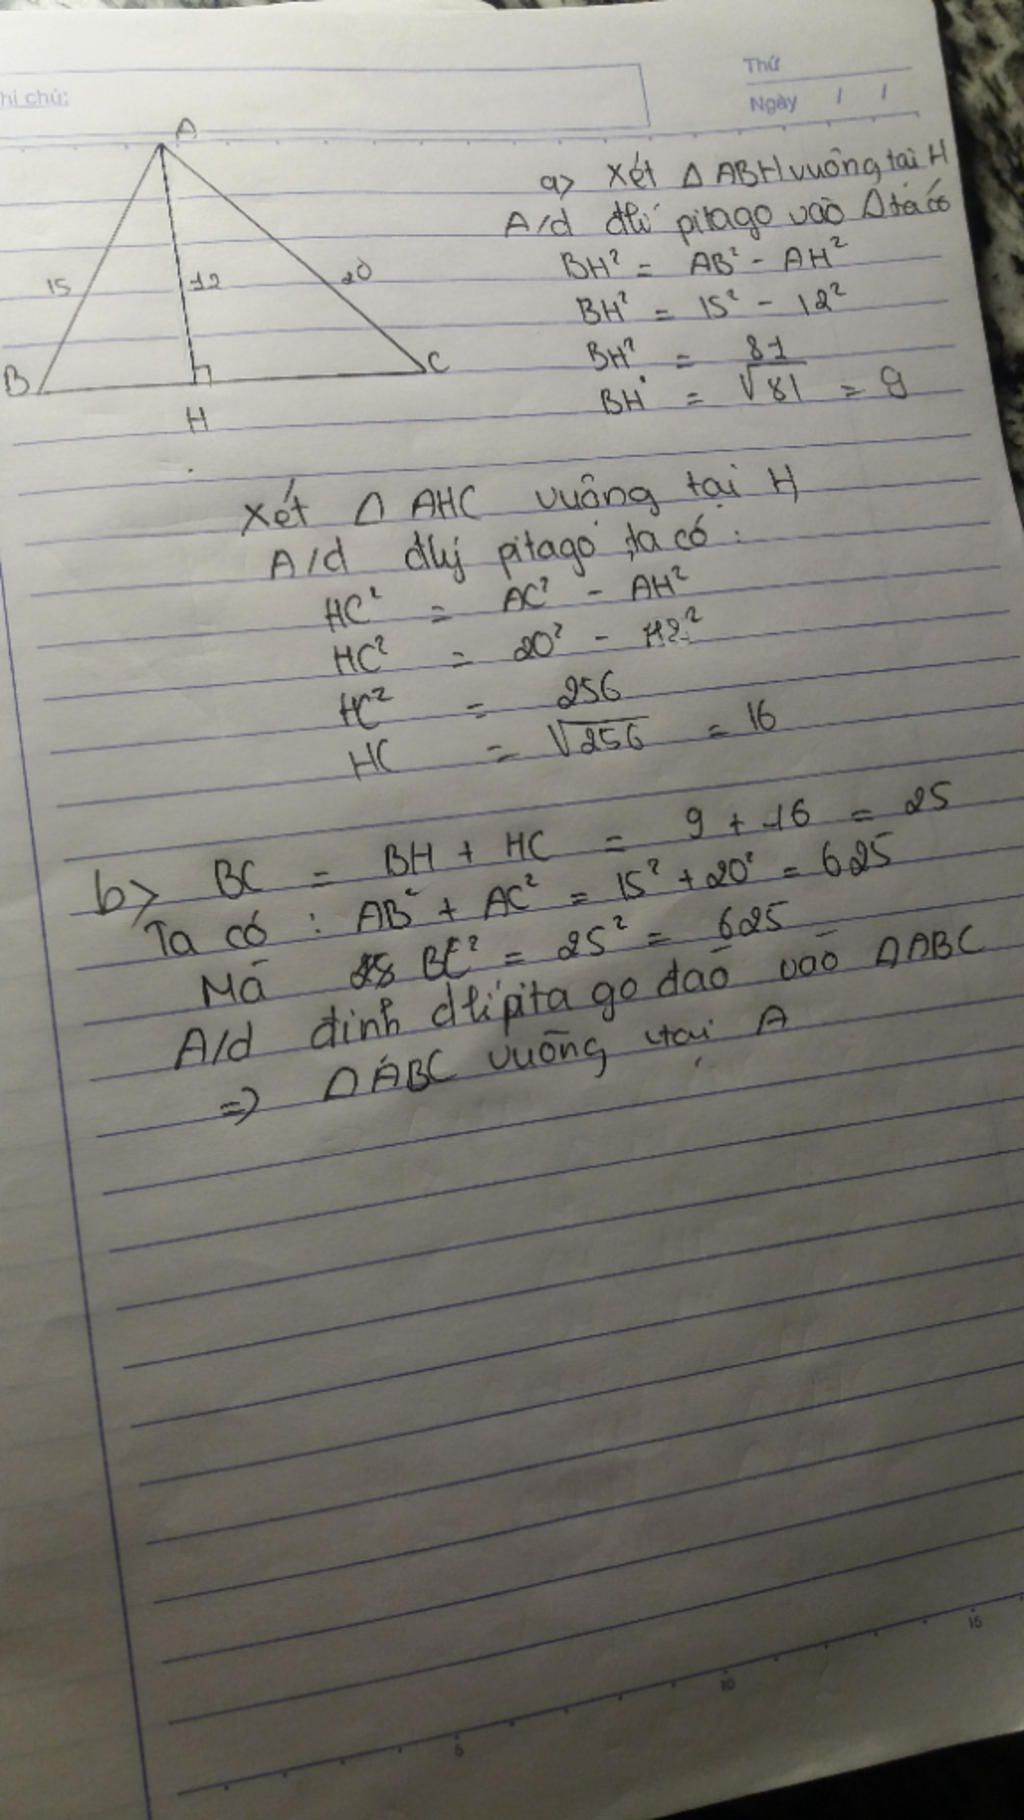 Thứ
hi chú:
Ngày / /
A
15
12
20
B
C
H
a> Xét Δ ABH vuông tại H
A/d đlí pitago vào Δ ta có
BH² = AB² - AH²
BH² = 15² - 12²
BH² = 81
BH = √81 = 9
Xét Δ AHC vuông tại H
A/d đlý pitago ta có :
HC² = AC² - AH²
HC² = 20² - 12²
HC² = 256
HC = √256 = 16
b> BC = BH + HC = 9 + 16 = 25
Ta có : AB² + AC² = 15² + 20² = 625
Mà BC² = 25² = 625
A/d định đlí pita go đảo vào ΔABC
=> ΔABC vuông tại A
5
10
15